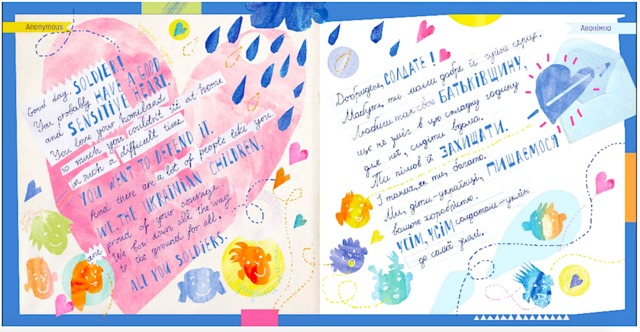 Anonymous
Good day, SOLDIER!
You probably HAVE A GOOD
and SENSITIVE HEART.
You love your homeland
so much you couldn't sit at home
in such a difficult time.
YOU WANT TO DEFEND IT.
And there are a lot of people like you.
WE, THE UKRAINIAN CHILDREN,
are proud of your courage.
We bow down all the way
to the ground for all.
ALL YOU SOLDIERS.
Анонімно
Добридень, СОЛДАТЕ!
Мабуть, ти маєш добре й чуйне серце.
Любиш так свою БАТЬКІВЩИНУ,
що не зміг в цю складну годину
для неї, сидіти вдома.
Ти пішов її ЗАХИЩАТИ.
І таких, як ти, багато.
Ми, діти-українці, ПИШАЄМОСЯ
вашою хоробрістю.
УСІМ, УСІМ солдатам - уклін
до самої землі.